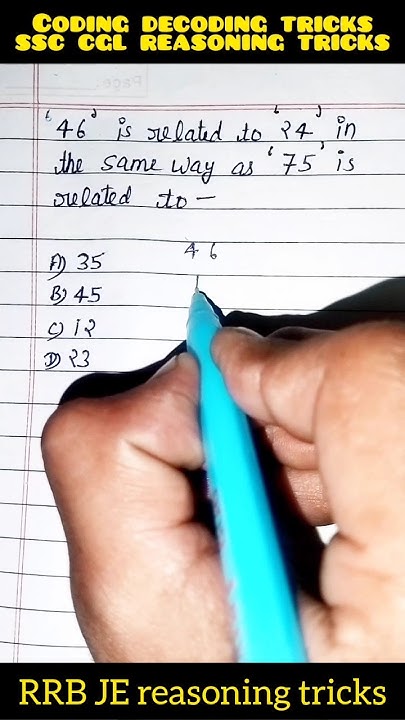 CODING DECODING TRICKS
SSC CGL REASONING TRICKS
'46' is related to '24' in
the same way as '75' is
related to —
4 6
A) 35
B) 45
C) 12
D) 23
RRB JE reasoning tricks